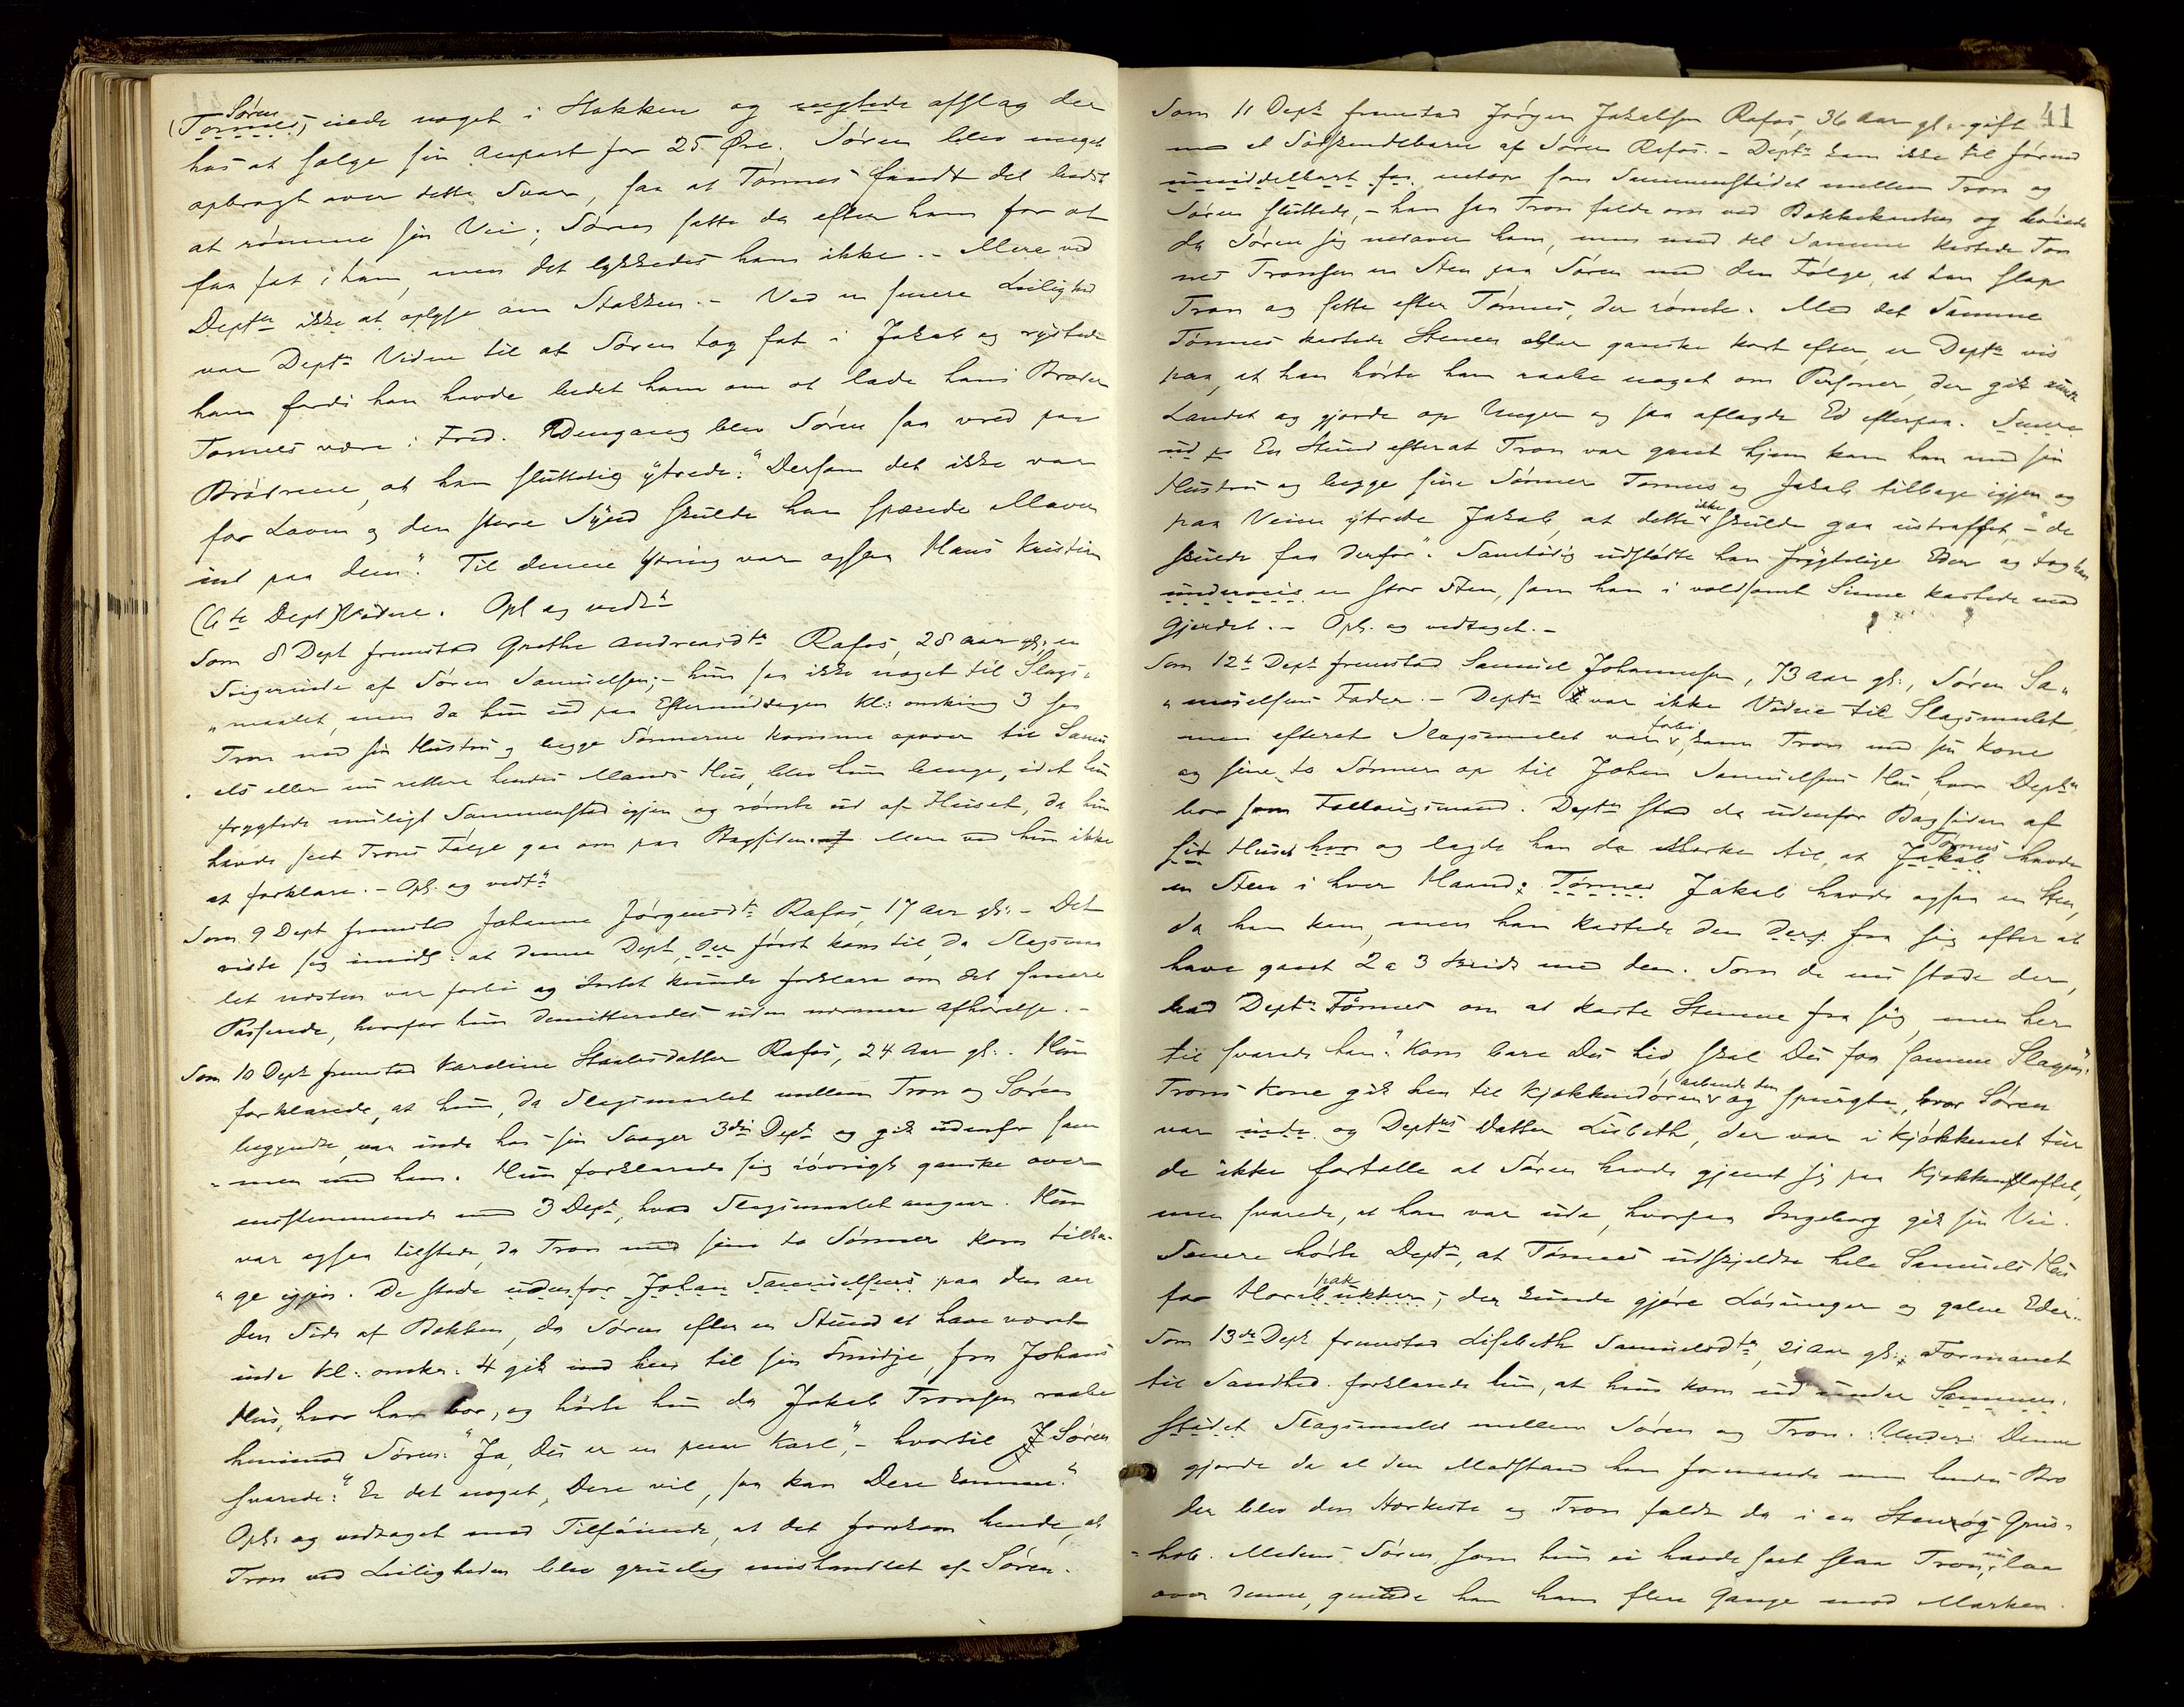 Søren
(Tønnes, inde noget i Stakken og negtede afslag der
hos at sælge sin anpart for 25 Øre. Søren blev meget
opbragt over dette Svar, saa at Tønnes fandt det bedst
at rømme sin Vei; Søren satte da efter ham for at
faa fat i ham, men det lykkedes ham ikke. - Mere ved
Deptn ikke at oplyse om Stakken. - Ved en senere Leilighed
var Deptn Vidne til at Søren tog fat i Jakob og rystede
ham fordi han havde bedet ham om at lade hans Broder
Tønnes være i Fred. Dengang blev Søren saa vred paa
Brødrene, at han sluttelig ytrede: "Dersom det ikke var
for Loven og den store Synd skulde han sparede Maven
ind paa dem". Til denne Ytring var ogsaa Hans Kristian
(6te Dept) Vidne. Opl og vedt.
Som 8 Dept fremstod Grethe Andreasdtr Rafos, 28 Aar gl; en
Svigerinde af Søren Samuelsen; - hun saa ikke noget til Slags-
"maalet, men da hun ud paa Eftermiddagen Kl: omkring 3 saa
Tron med sin Hustru og begge Sønnerne komme opover til Samu
els eller nu rettere hendes Mands Hus, blev hun bange, idet hun
frygtede muligt Sammenstød igjen og rømte ud af Huset, da hun
havde seet Trons Følge gaa om paa Bagsiden. Mere ved hun ikke
at forklare. - Opl. og vedt.
Som 9 Dept fremstod Johanne Jørgensdtr Rafos, 17 Aar gl: - Det
viste sig imidl: at denne Dept, der først kom til, da Slagsmaa
let næsten var forbi og Intet kunde forklare om det senere
Passerede, hvorfor hun demitteredes uden nærmere afhørelse. -
Som 10 Dept fremstod Karoline Staalesdatter Rafos, 24 Aar gl:. Hun
forklarede, at hun, da Slagsmaalet mellem Tron og Søren
begyndte, var inde hos sin Svoger 3die Dept og gik udenfor sam
"men med ham. Hun forklarede sig iøvrigt ganske over
ensstemmende med 3 Dept, hvad Slagsmaalet angaar. Hun
var ogsaa tilstede, da Tron med sine to Sønner kom tilba-
"ge igjen. De stode udenfor Johan Samuelsens paa den an
den Side af Bakken, da Søren efter en Stund at have været
inde Kl: omkr: 4 gik ind hen til sin Smidje, fra Johans
Hus, hvor han bor, og hørte hun da Jakob Tronsen raabe
henimod Søren: "Ja, Du er en pen Karl", - hvortil Søren
svarede: "Er det noget, Dere vil, saa kan Dere komme."
Opl. og vedtaget med Tilføiende, at det forekom hende, at
Tron ved Leiligheden blev gruelig mishandlet af Søren.
41
Som 11 Dept fremstod Jørgen Jakobsen Rafos, 36 Aar gl., gift
med et Sødskendebarn af Søren Rafos. - Deptn kom ikke til før end
umiddelbart før netop som Sammenstødet mellem Tron og
Søren sluttede, - han saa Tron falde om ved Bakkekanten og bøiede
da Søren sig nedover ham, men med det Samme kastede Tøn
nes Tronsen en Sten paa Søren med den Følge, at han slap
Tron og satte efter Tønnes, der rømte. Med det Samme
Tønnes kastede Stenen eller ganske kort efter, er Deptn vis
paa, at han hørte ham raabe noget om Personer, der gik rundt
Landet og gjorde op Unger og saa aflagde Ed efterpaa. Senere
ud p En Stund efterat Tron var gaaet hjem kom han med sin
Hustru og begge sine Sønner Tønnes og Jakob tilbage igjen og
paa Veien ytrede Jakob, at dette ikke skulde gaa ustraffet, - "de
skulde faa derfor". Samtidig udstødte han frygtelige Eder og tog han
underveis en stor Sten, som han i voldsomt Sinne kastede mod
Gjerdet. - Opl. og vedtaget. -
Som 12t Dept fremstod Samuel Johannesen, 73 Aar gl:, Søren Sa"
"muelsens Fader. - Deptn var ikke Vidne til Slagsmaalet,
men efterat Slagsmaalet var forbi, kom Tron med sin Kone
og sine to Sønner op til Johan Samuelsens Hus, hvor Deptn
bor som Føllaugsmand. Deptn stod da udenfor Bagsiden af
sit Huset hvor og lagde han da Mærke til, at Tønnes Jakob havde
en Sten i hver Haand; Tønnes Jakob havde ogsaa en Sten,
da han kom, men han kastede den derp. fra sig efter at
have gaaet 2 a 3 Skridt med den. Som de nu stode der,
bad Deptn Tønnes om at kaste Stenene fra sig, men her
til svarede han: "Kom bare Du hid, skal Du faa samme Slagen".
Trons Kone gik hen til Kjøkkendøren aabnede den og spurgte, hvor Søren
var inde og Deptns Datter Lisbeth, der var i Kjøkkenet tur
de ikke fortælle at Søren havde gjemt sig paa Kjøkkenloftet,
men svarede, at han var ude, hvorpaa Ingeborg gik sin Vei.
Senere hørte Deptn, at Tønnes udskjeldte hele Samuels Hus
for Horepak bukker, der kunde gjøre Løsunger og galne Eder.
Som 13de Dept fremstod Lisebeth Samuelsdtr, 21 Aar gl:; Formanet
til Sandhed forklarede hun, at hun kom ud under Sammen
stødet Slagsmaalet mellem Søren og Tron. Under Denne
gjorde da al den Modstand han formaaede men hendes Bro
der blev den stærkeste og Tron faldt da i en Sten og Grus-
"hob. Medens Søren, som hun ei havde seet slaa Tron, nu laa
over denne, gnuede han ham flere Gange mod Marken.